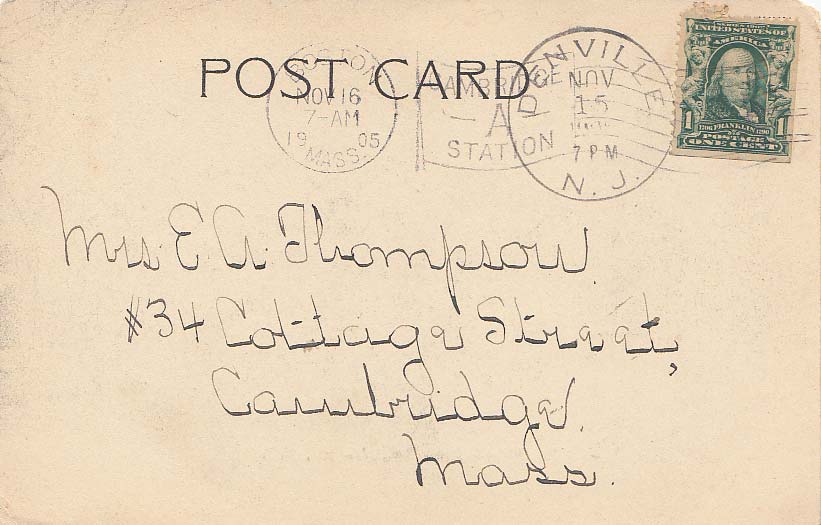 POST CARD
BOSTON
NOV 16
7-AM
1905
MASS.
CAMBRIDGE
A
STATION
DENVILLE
NOV
15
7 PM
N. J.
SERIES 1902
UNITED STATES OF
AMERICA
1 1
1706 FRANKLIN 1790
POSTAGE
ONE CENT
Mrs E. A. Thompson.
#34 Cottage Street,
Cambridge.
Mass.